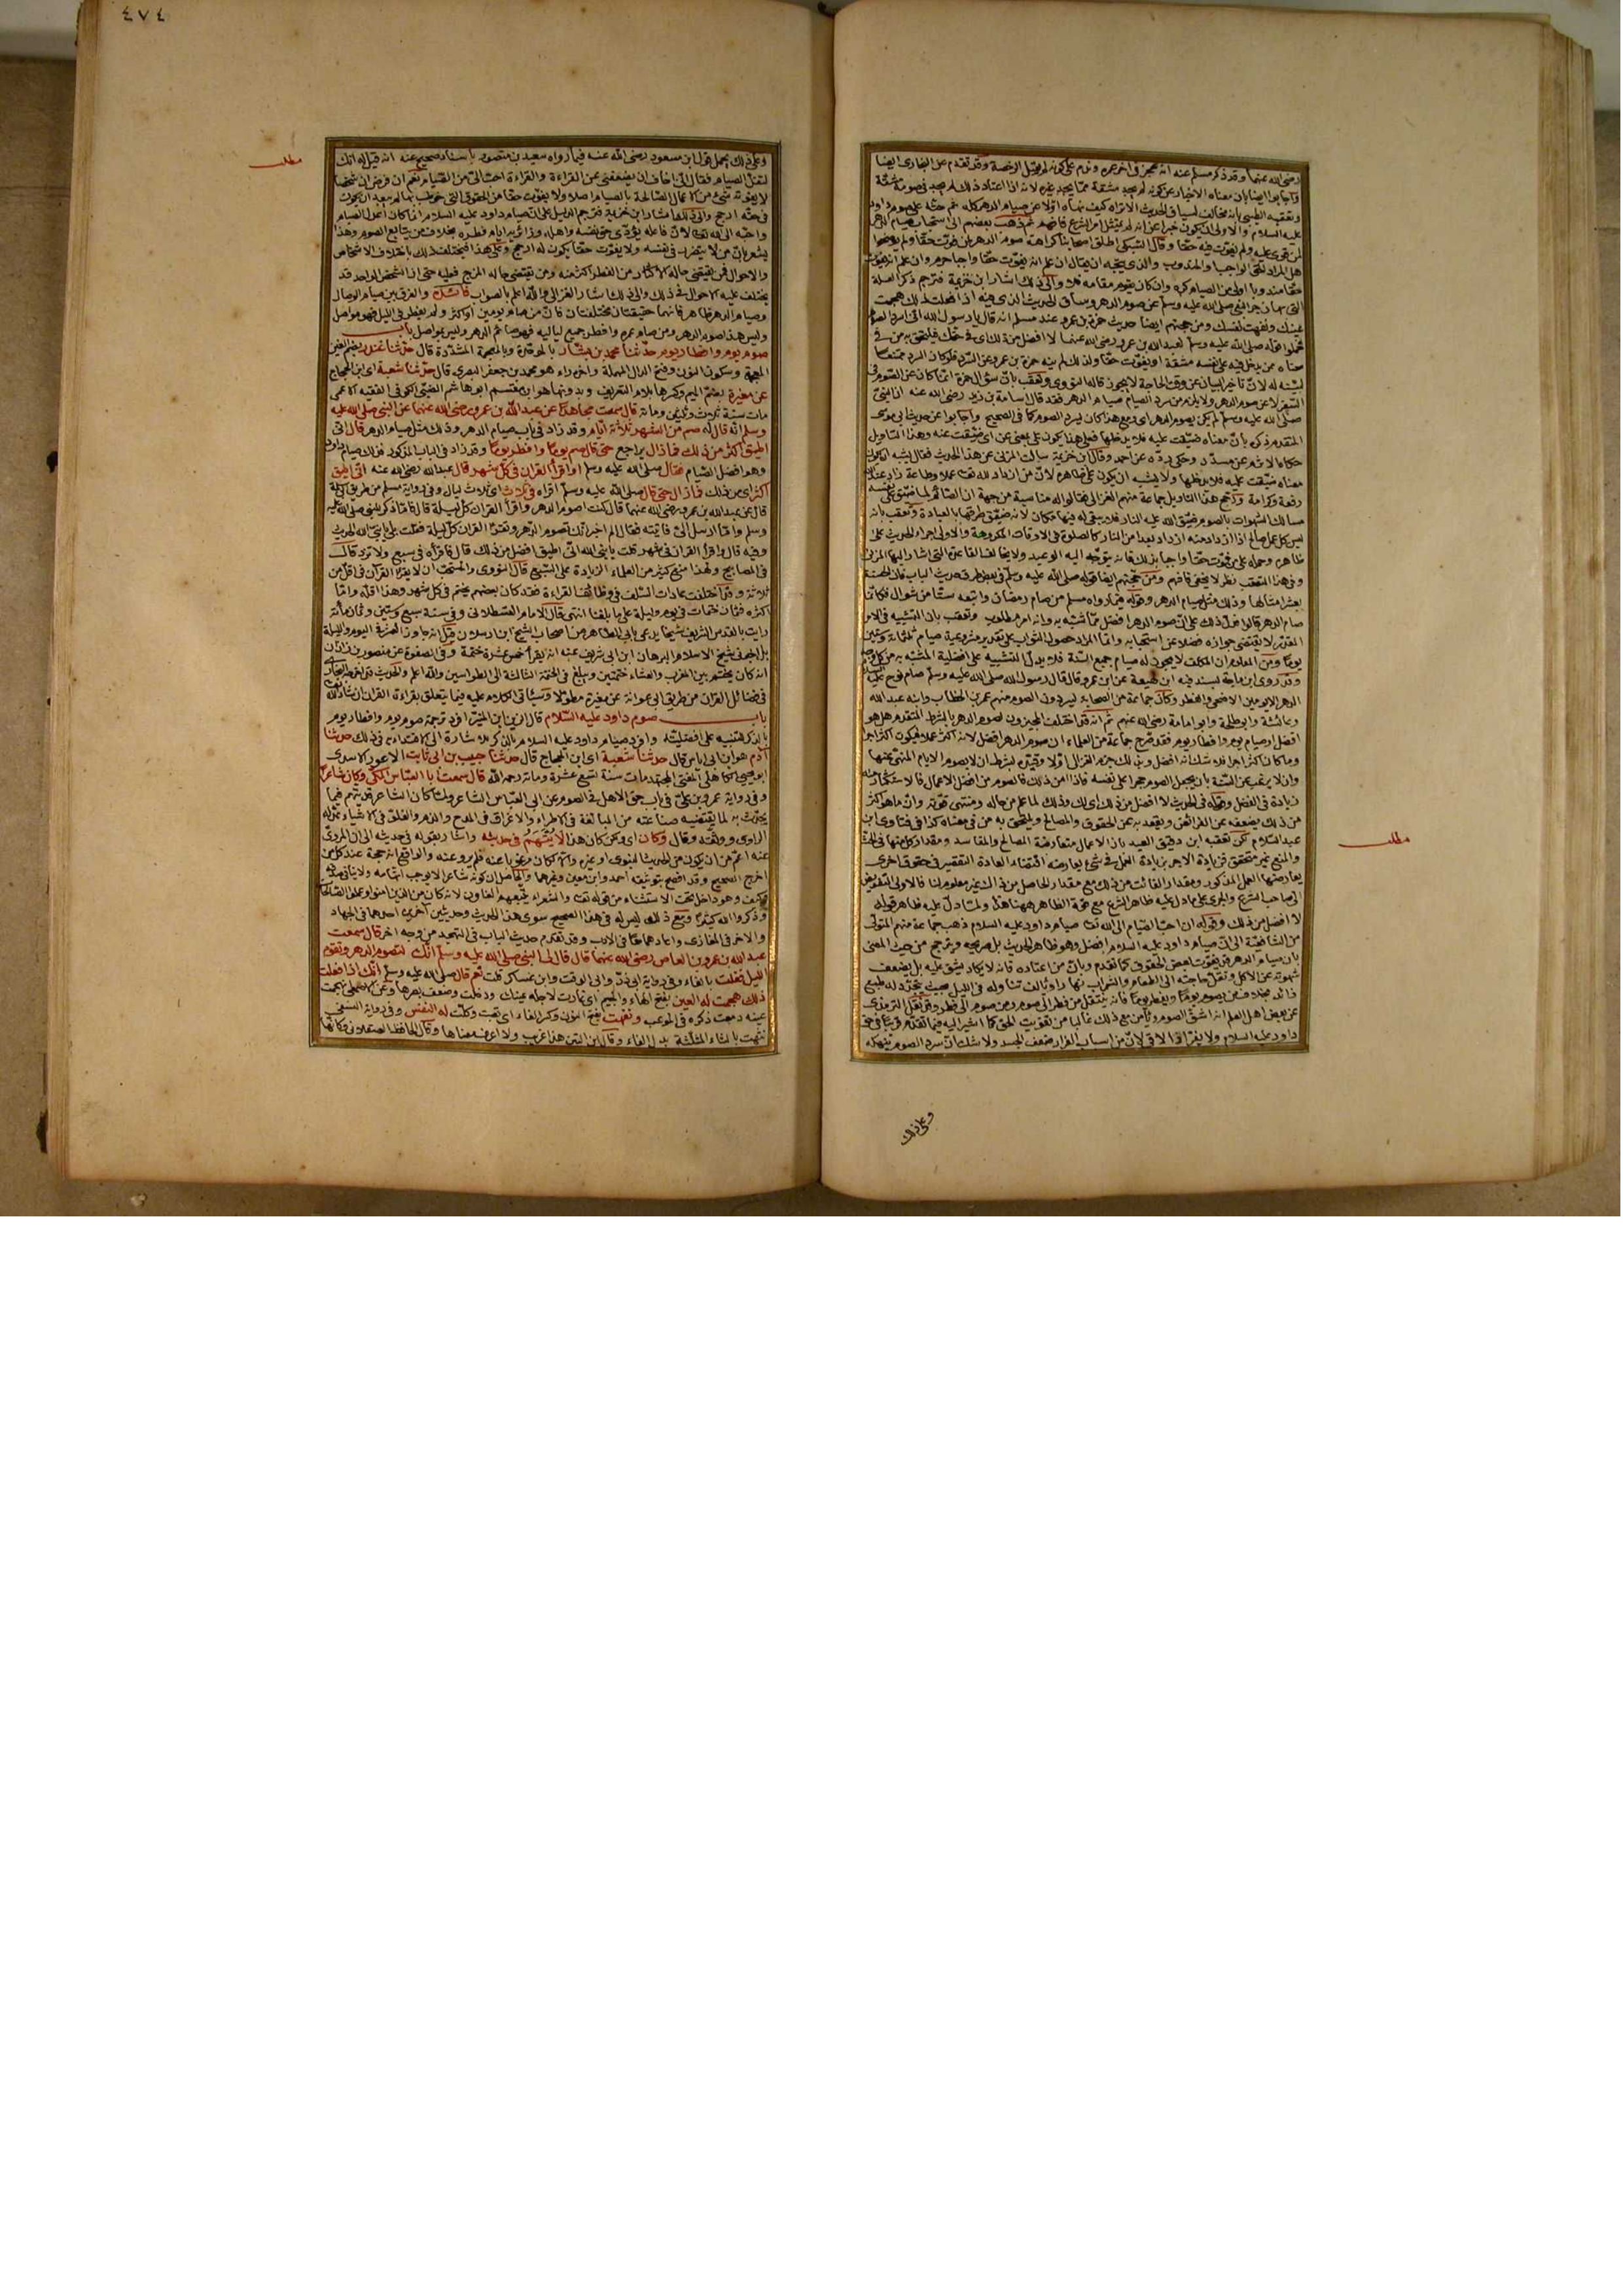 ٤٧٤
رضي الله عنهما وقد ذكر مسلم عنه انه عجز في اخر عمره وندم على كونه لم يقبل الرخصة وقد تقدم عن البخاري ايضا
واجابوا ايضا بان معناه الاخبار عن كونه لم يجد مشقة مما يجد غيره لانه اذا اعتاد ذلك لم يجد في صومه مشقة
وتعقبه الطيبي بانه مخالف لسياق الحديث الا تراه كيف نهاه اولا عن صيام الدهر كله ثم حثه على صوم داود
عليه السلام والاولى ان يكون خبرا عن انه لم يمتثل امر الشرع فافهم ثم ذهب بعضهم الى استحباب صيام الدهر
لمن قوي عليه ولم يفوت فيه حقا وقال السبكي اطلق اصحابنا كراهة صوم الدهر لمن فوت حقا ولم يوضحوا
هل المراد الحق الواجب او المندوب والذي يتجه ان يقال ان علم انه يفوت حقا واجبا حرم وان علم انه يفوت
حقا مندوبا اولى من الصيام كره وان كان يقوم مقامه فلا والى ذلك اشار ابن خزيمة فترجم ذكر العلة
التي بها زجر النبي صلى الله عليه وسلم عن صوم الدهر وساق الحديث الذي فيه اذا فعلت ذلك هجمت
عينك ونفهت نفسك ومن حجتهم ايضا حديث حمزة بن عمرو عند مسلم انه قال يا رسول الله اني اسرد الصوم
فحملوا قوله صلى الله عليه وسلم لعبد الله بن عمرو رضي الله عنهما لا افضل من ذلك اي في حقك فيلتحق به من في
معناه ممن يدخل فيه على نفسه مشقة او يفوت حقا ولذلك لم ينه حمزة بن عمرو عن السرد فلو كان السرد ممتنعا
لبينه له لان تاخير البيان عن وقت الحاجة لا يجوز قاله النووي وتعقب بان سؤال حمزة انما كان عن الصوم في
السفر لا عن صوم الدهر ولا يلزم من سرد الصيام صيام الدهر فقد قال اسامة بن زيد رضي الله عنه ان النبي
صلى الله عليه وسلم لم يكن يصوم الدهر اي ومع هذا كان يسرد الصوم كما في الصحيح واجابوا عن حديث ابي موسى
المتقدم ذكره بان معناه ضيقت عليه فلا يدخلها فعلى هذا يكون على بمعنى عن اي ضيقت عنه وهذا التاويل
حكاه الاثرم عن مسدد وحكى رده عن احمد وقال ابن خزيمة سالت المزني عن هذا الحديث فقال يشبه ان يكون
معناه ضيقت عليه فلا يدخلها ولا يشبه ان يكون على ظاهره لان من ازداد لله تعا عملا وطاعة زاد عند الله
رفعة وكرامة ورجح هذا التاويل جماعة منهم الغزالي فقالوا له مناسبة من جهة ان الصائم لما ضيق على نفسه
مسالك الشهوات بالصوم ضيق الله عليه النار فلا يبقى له فيها مكان لانه ضيق طرقها بالعبادة وتعقب بانه
ليس كل عمل صالح اذا ازداد منه ازداد بعدا من النار كالصلوة في الاوقات المكروهة والاولى اجراء الحديث على
ظاهره وحمله على من فوت حقا واجبا بذلك فانه يتوجه اليه الوعيد ولا يخالف القاعدة التي اشار اليها المزني
وفي هذا التعقب نظر لا يخفى فافهم ومن حجتهم ايضا قوله صلى الله عليه وسلم في بعض طرق حديث الباب فان الحسنة
بعشر امثالها وذلك مثل صيام الدهر وقوله فيما رواه مسلم من صام رمضان واتبعه ستا من شوال فكانما
صام الدهر قالوا فدل ذلك على ان صوم الدهر افضل مما شبه به وانه امر مطلوب وتعقب بان التشبيه في الامر
المقدر لا يقتضي جوازه فضلا عن استحبابه وانما المراد حصول الثواب على تقدير مشروعية صيام ثلثمائة وستين
يوما ومن المعلوم ان المكلف لا يجوز له صيام جميع السنة فلا يدل التشبيه على افضلية المشبه به من كل وجه
وقد روى ابن ماجة بسند فيه ابن لهيعة عن ابن عمرو قال قال رسول الله صلى الله عليه وسلم صام نوح عليه السلام
الدهر الا يومين الاضحى والفطر وكان جماعة من الصحابة يسردون الصوم منهم عمر بن الخطاب وابنه عبد الله
وعائشة وابو طلحة وابو امامة رضي الله عنهم ثم انه قد اختلف المجيزون لصوم الدهر بالشرط المتقدم هل هو
افضل او صيام يوم وافطار يوم فقد صرح جماعة من العلماء ان صوم الدهر افضل لانه اكثر عملا فيكون اكثر اجرا
وما كان اكثر اجرا فلا شك انه افضل وبذلك جزم الغزالي اولا وقيده بشرط ان لا يصوم الايام المنهي عنها
وان لا يرغب عن السنة بان يجعل الصوم حجرا على نفسه فاذا امن ذلك فالصوم من افضل الاعمال فالاستكثار منه
زيادة في الفضل وقوله في الحديث لا افضل من ذلك اي لك وذلك لما علم من حاله ومنتهى قوته وان ما هو اكثر
من ذلك يضعفه عن الفرائض ويقعد به عن الحقوق والمصالح ويلتحق به من في معناه كذا في فتاوى ابن
عبد السلام لكن تعقبه ابن دقيق العيد بان الاعمال متعارضة المصالح والمفاسد ومقدار كل منها في الحث
والمنع غير متحقق فزيادة الاجر بزيادة العمل في شيء يعارضه اقتضاء العادة التقصير في حقوق اخرى
يعارضها العمل المذكور ومقدار الفائت من ذلك مع مقدار الحاصل من ذاك غير معلوم لنا فالاولى التفويض
الى صاحب الشرع والجري على ما دل عليه ظاهر الشرع مع قوة الظاهر ههنا هذا ولما دل عليه ظاهر قوله
لا افضل من ذلك وقوله ان احب الصيام الى الله تعا صيام داود عليه السلام ذهب جماعة منهم المتولي
من الشافعية الى ان صيام داود عليه السلام افضل وهو ظاهر الحديث بل صريحه ويترجح من حيث المعنى
بان صيام الدهر قد يفوت بعض الحقوق كما تقدم وبان من اعتاده فانه لا يكاد يشق عليه بل يضعف
شهوته عن الاكل وتقل حاجته الى الطعام والشراب نهارا ويالف تناوله في الليل بحيث يتجدد له طبع
زائد بخلاف من يصوم يوما ويفطر يوما فانه ينتقل من فطر الى صوم ومن صوم الى فطر وقد نقل الترمذي
عن بعض اهل العلم انه اشق الصوم ويامن مع ذلك غالبا من تفويت الحق كما اشير اليه فيما تقدم قريبا في حق
داود عليه السلام ولا يفر اذا لاقى لان من اسباب الفرار ضعف الجسد ولا شك ان سرد الصوم ينهكه
مطلب
وعلى ذلك
وعلى ذلك يحمل قول ابن مسعود رضي الله عنه فيما رواه سعيد بن منصور باسناد صحيح عنه انه قيل له انك
لتقل الصيام فقال اني اخاف ان يضعفني عن القراءة والقراءة احب الي من الصيام نعم ان فرض ان شخصا
لا يفوته شيء من الاعمال الصالحة بالصيام اصلا ولا يفوت حقا من الحقوق التي خوطب بها لم يبعد ان يكون
في حقه ارجح والى ذلك اشار ابن خزيمة فترجم الدليل على ان صيام داود عليه السلام انما كان اعدل الصيام
واحبه الى الله تعا لان فاعله يؤدي حق نفسه واهله وزائره ايام فطره بخلاف من يتابع الصوم وهذا
يشعر بان من لا يتضرر في نفسه ولا يفوت حقا يكون له ارجح وعلى هذا فيختلف ذلك باختلاف الاشخاص
والاحوال فمن يقتضي حاله الاكثار من الفطر اكثر منه ومن يقتضي حاله المزج فعليه حتى ان الشخص الواحد قد
يختلف عليه الاحوال في ذلك والى ذلك اشار الغزالي والله اعلم بالصواب فائدة والفرق بين صيام الوصال
وصيام الدهر ظاهر فانهما حقيقتان مختلفتان فان من صام يومين او اكثر ولم يفطر في الليل فهو مواصل
وليس هذا صوم الدهر ومن صام عمره وافطر جميع لياليه فهو صائم الدهر وليس بمواصل باب
صوم يوم وافطار يوم حدثنا محمد بن بشار بالموحدة وبالمعجمة المشددة قال حدثنا غندر بضم الغين
المعجمة وسكون النون وفتح الدال المهملة واخره راء هو محمد بن جعفر البصري قال حدثنا شعبة اي ابن الحجاج
عن مغيرة بضم الميم وكسرها بلام التعريف وبدونها هو ابن مقسم ابو هاشم الضبي الكوفي الفقيه الاعمى
مات سنة ثلاث وثلثين ومائة قال سمعت مجاهدا عن عبد الله بن عمرو رضي الله عنهما عن النبي صلى الله عليه
وسلم انه قال له صم من الشهر ثلاثة ايام وقد زاد في باب صيام الدهر وذلك مثل صيام الدهر قال اني
اطيق اكثر من ذلك فما زال يراجع حتى قال صم يوما وافطر يوما وقد زاد في الباب المذكور فذلك صيام داود
وهو افضل الصيام فقال صلى الله عليه وسلم اقرأ القران في كل شهر قال عبد الله رضي الله عنه اني اطيق
اكثر اي من ذلك فما زال حتى قال صلى الله عليه وسلم اقراه في ثلاث اي ثلاث ليال وفي رواية مسلم من طريق
قال عن عبد الله بن عمرو رضي الله عنهما قال كنت اصوم الدهر واقرأ القران كل ليلة قال فاما ذكر للنبي صلى الله عليه
وسلم واما ارسل الي فاتيته فقال الم اخبر انك تصوم الدهر وتقرأ القران كل ليلة فقلت بلى يا نبي الله الحديث
وفيه قال واقرأ القران في شهر قلت يا نبي الله اني اطيق افضل من ذلك قال فاقراه في سبع ولا تزد قال
في المصابيح ولهذا منع كثير من العلماء الزيادة على السبع قال النووي والمستحب ان لا يقرأ القرآن في اقل من
ثلاثة وقد اختلفت عادات السلف في وظائف القراءة فقد كان بعضهم يختم في كل شهر وهذا اقله واما
اكثره فثمان ختمات في يوم وليلة على ما بلغنا انتهى قال الامام القسطلاني وفي سنة سبع وستين وثمان مائة
رايت بالقدس الشريف شيخا يدعى بابي الطاهر من اصحاب الشيخ ابن رسلان قيل انه جاوز العشر في اليوم والليلة
بل اخبرني شيخ الاسلام البرهان ابن ابي شريف عنه انه يقرأ خمس عشرة ختمة وفي الصفوة عن منصور بن زاذان
انه كان يختم بين المغرب والعشاء ختمتين ويبلغ في الختمة الثالثة الى الطواسين والله اعلم والحديث قد اخرجه البخاري
في فضائل القران من طريق ابي عوانة عن مغيرة مطولا وسيأتي الكلام عليه فيما يتعلق بقراءة القران ان شاء الله تعا
باب صوم داود عليه السلام قال الزين ابن المنير افرد ترجمة صوم يوم وافطار يوم
بالذكر للتنبيه على افضليته وافرد صيام داود عليه السلام بالذكر للاشارة الى الاقتداء به في ذلك حدثنا
آدم هو ابن ابي اياس قال حدثنا شعبة اي ابن الحجاج قال حدثنا حبيب بن ابي ثابت الاعور الاسدي
ابو يحيى الكاهلي المفتي المجتهد مات سنة تسع عشرة ومائة رحمه الله قال سمعت ابا العباس المكي وكان شاعرا
وفي رواية عمرو بن علي في باب حق الاهل في الصوم عن ابي العباس الشاعر ولما كان الشاعر قد يتهم فيما
يحدث به لما يقتضيه صناعته من المبالغة في الاطراء والاغراق في المدح والذم والغلو في الاشياء عدله
الراوي ووثقه وقال وكان اي ومع كون كان هذا لا يتهم في حديثه واشار بقوله في حديثه الى ان المروي
عنه اعم من ان يكون من الحديث النبوي او غيره وان كان مرغوبا عنه فلم يرو عنه والواقع انه حجة عند كل من
اخرج الصحيح وقد افصح بتوثيقه احمد وابن معين وغيرهما والحاصل ان كونه شاعرا لا يوجب اتهامه
كيف وهو داخل تحت الاستثناء من قوله تعا والشعراء يتبعهم الغاوون لانه كان من الذين امنوا وعملوا الصالحات
وذكروا الله كثيرا ومع ذلك ليس له في هذا الصحيح سوى هذا الحديث وحديثين اخرين احدهما في الجهاد
والاخر في المغازي واعادهما معا في الادب وقد تقدم حديث الباب في التهجد من وجه اخر قال سمعت
عبد الله بن عمرو بن العاص رضي الله عنهما قال قال لي النبي صلى الله عليه وسلم انك لتصوم الدهر وتقوم
الليل فقلت بالفاء وفي رواية ابي ذر وابي الوقت وابن عساكر قلت نعم قال صلى الله عليه وسلم انك اذا فعلت
ذلك هجمت له العين بفتح الهاء والجيم اي غارت لاجله عيناك ودخلت وضعف بصرها وعن هجمت
عينه دمعت ذكره في الموعب ونفهت بفتح النون وكسر الفاء اي تعبت وكلت له النفس وفي رواية النسفي
نثهت بالثاء المثلثة بدل الفاء وقال ابن التين هذا غريب ولا اعرف معناها وقال الحافظ العسقلاني وكانها
مطلب